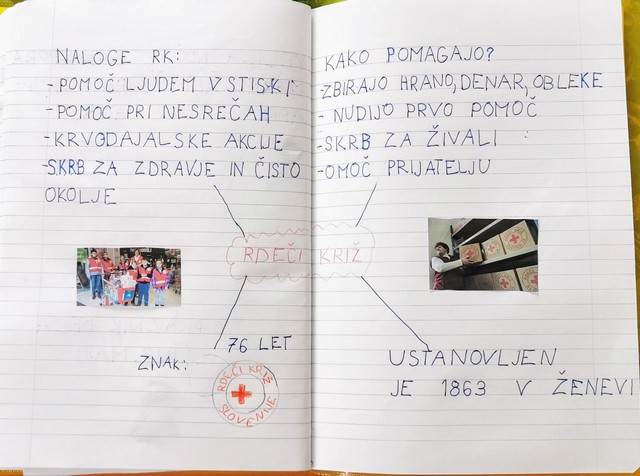 NALOGE RK:
-POMOČ LJUDEM V STISKI
-POMOČ PRI NESREČAH
-KRVODAJALSKE AKCIJE
-SKRB ZA ZDRAVJE IN ČISTO
OKOLJE
KAKO POMAGAJO?
-ZBIRAJO HRANO, DENAR, OBLEKE
- NUDIJO PRVO POMOČ
-SKRB ZA ŽIVALI
-OMOČ PRIJATELJU
RDEČI KRIŽ
76 LET
ZNAK:
RDEČI KRIŽ
SLOVENIJE
USTANOVLJEN
JE 1863 V ŽENEVI